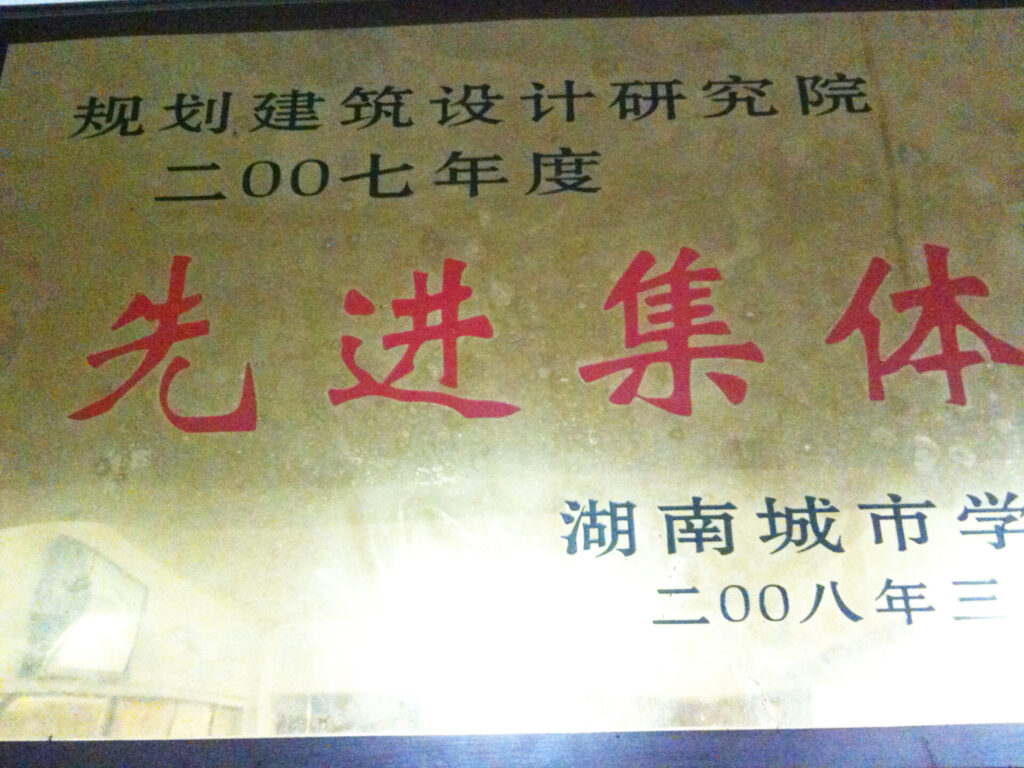 规划建筑设计研究院
二00七年度
先进集体
湖南城市学
二00八年三